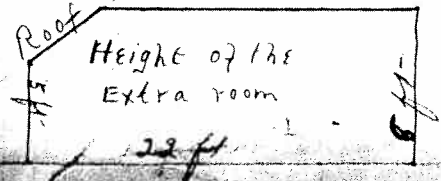 Roof
Height of the
Extra room
5 ft-
8 ft-
22 ft